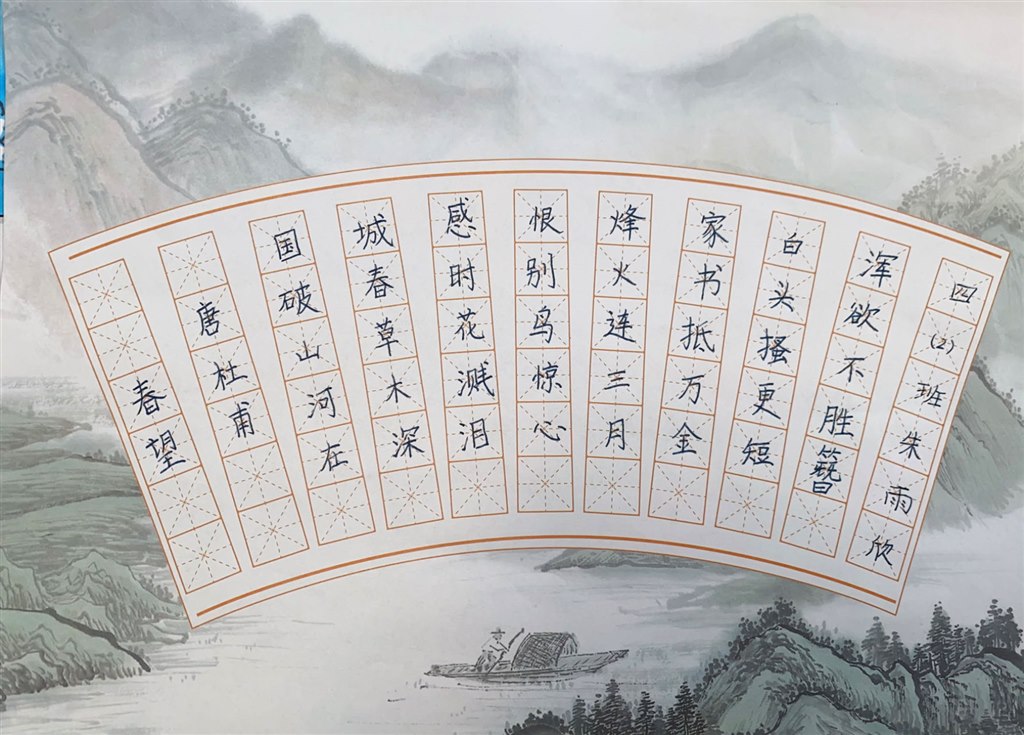 春望
唐杜甫
国破山河在
城春草木深
感时花溅泪
恨别鸟惊心
烽火连三月
家书抵万金
白头搔更短
浑欲不胜簪
四(2)班朱雨欣